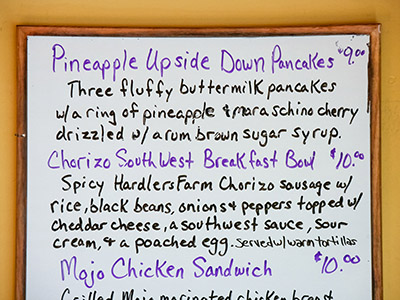 Pineapple Upside Down Pancakes $9.00
Three fluffy buttermilk pancakes
w/a ring of pineapple & maraschino cherry
drizzled w/ a rum brown sugar syrup.
Chorizo SouthWest Breakfast Bowl $10.00
Spicy Hardlers Farm Chorizo sausage w/
rice, black beans, onions & peppers topped w/
cheddar cheese, a southwest sauce, sour
cream, & a poached egg. Served w/ warm tortillas
Mojo Chicken Sandwich $10.00
Grilled Mojo marinated chicken breast